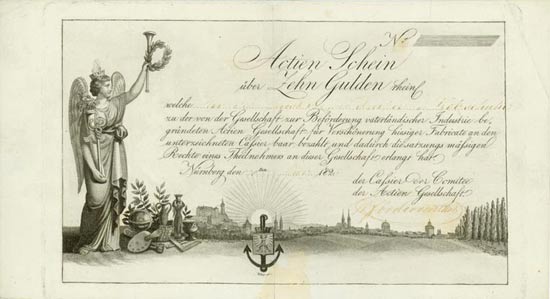 No.
Actien Schein
über Zehn Gulden rhein.
welche
zu der von der Gesellschaft zur Beförderung vaterländischer Industrie be,
gründeten Actien Gesellschaft für Verschönerung hiesiger Fabricate an den
unterzeichneten Cassier baar bezahlt und dadurch die satzungs mässigen
Rechte eines Theilnehmers an dieser Gesellschaft erlangt hat.
Nürnberg den 182
der Cassier der Comitee
der Actien Gesellschaft